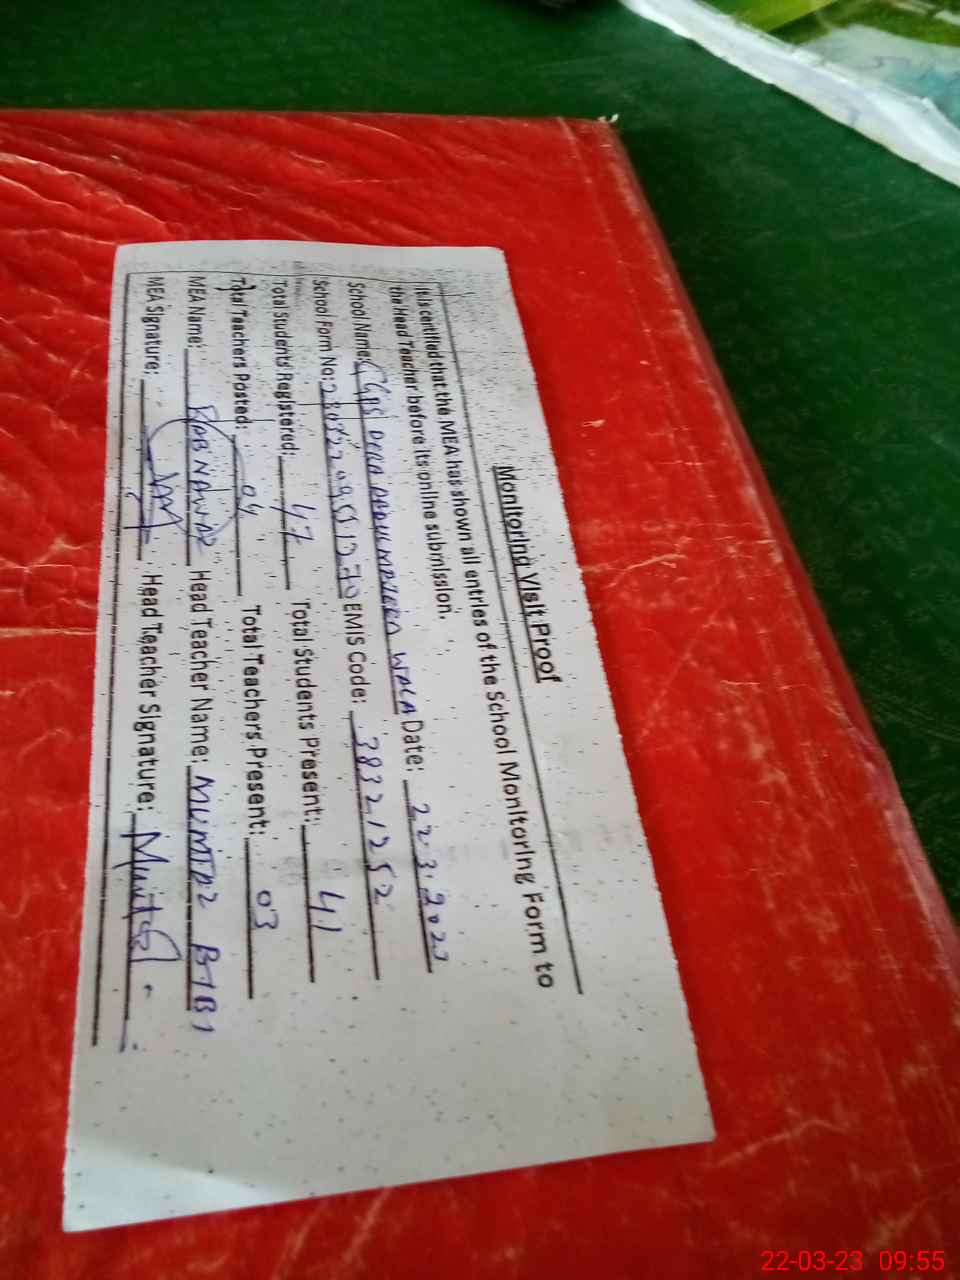 Monitoring Visit Proof
It is certified that the MEA has shown all entries of the School Monitoring Form to
the Head Teacher before its online submission.
School Name: GGPS DERA WALA Date: 22.3.2023
School Form No: EMIS Code: 38321252
Total Students Registered: 47 Total Students Present: 41
Total Teachers Posted: 04 Total Teachers Present: 03
MEA Name: RAB NAWAZ Head Teacher Name: MUMTAZ BIBI
MEA Signature: Head Teacher Signature: Mumtaz
22-03-23 09:55